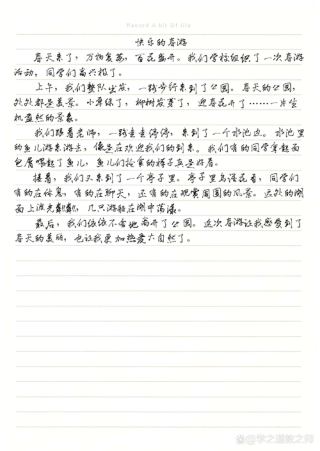 Record A bit Of life
快乐的春游
春天来了，万物复苏，百花盛开。我们学校组织了一次春游
活动，同学们高兴极了。
上午，我们整队出发，一路步行来到了公园。春天的公园，
处处都是美景。小草绿了，柳树发芽了，迎春花开了……一片生
机盎然的景象。
我们跟着老师，一路走走停停，来到了一个水池边。水池里
的鱼儿游来游去，像是在欢迎我们的到来。我们有的同学拿起面
包屑喂起了鱼儿，鱼儿们抢食的样子真是好看。
接着，我们又来到了一个亭子里。亭子里鸟语花香，同学们
有的在休息，有的在聊天，还有的在观赏周围的风景。远处的湖
面上波光粼粼，几只游船在湖中荡漾。
最后，我们依依不舍地离开了公园。这次春游让我感受到了
春天的美丽，也让我更加热爱大自然了。
学之道教之师